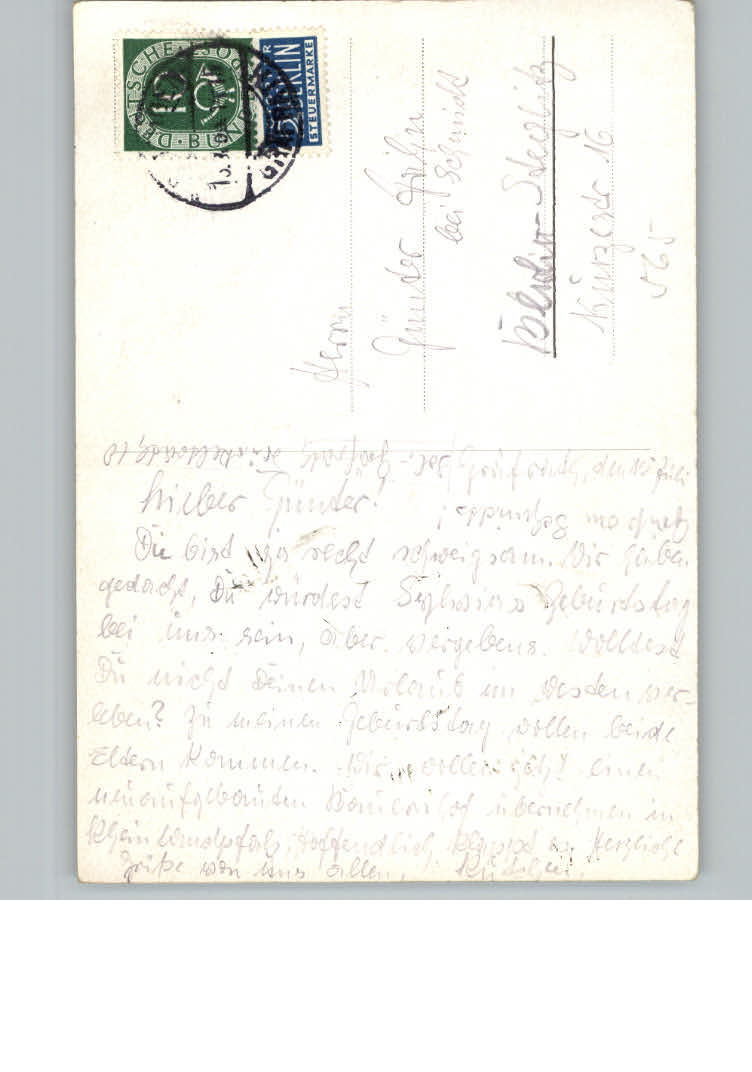 DEUTSCHE BUNDESPOST
10
2 NOTOPFER
BERLIN
STEUERMARKE
Herrn
Günter
bei Schmidt
Berlin-Steglitz
Kurzestr 16
565
Grafrath, den Juli
Lieber Günter!
Du bist ja recht schweigsam. Wir haben
gedacht, Du würdest Sylvias Geburtstag
bei uns sein, aber vergebens. Wolltest
Du nicht Deinen Urlaub im Westen ver-
leben? Zu meinen Geburtstag wollen beide
Eltern kommen. Wir wollen jetzt einen
neuaufgebauten Bauernhof übernehmen in
Rheinlandpfalz, hoffendlich klappt es. Herzliche
Grüße von uns allen,